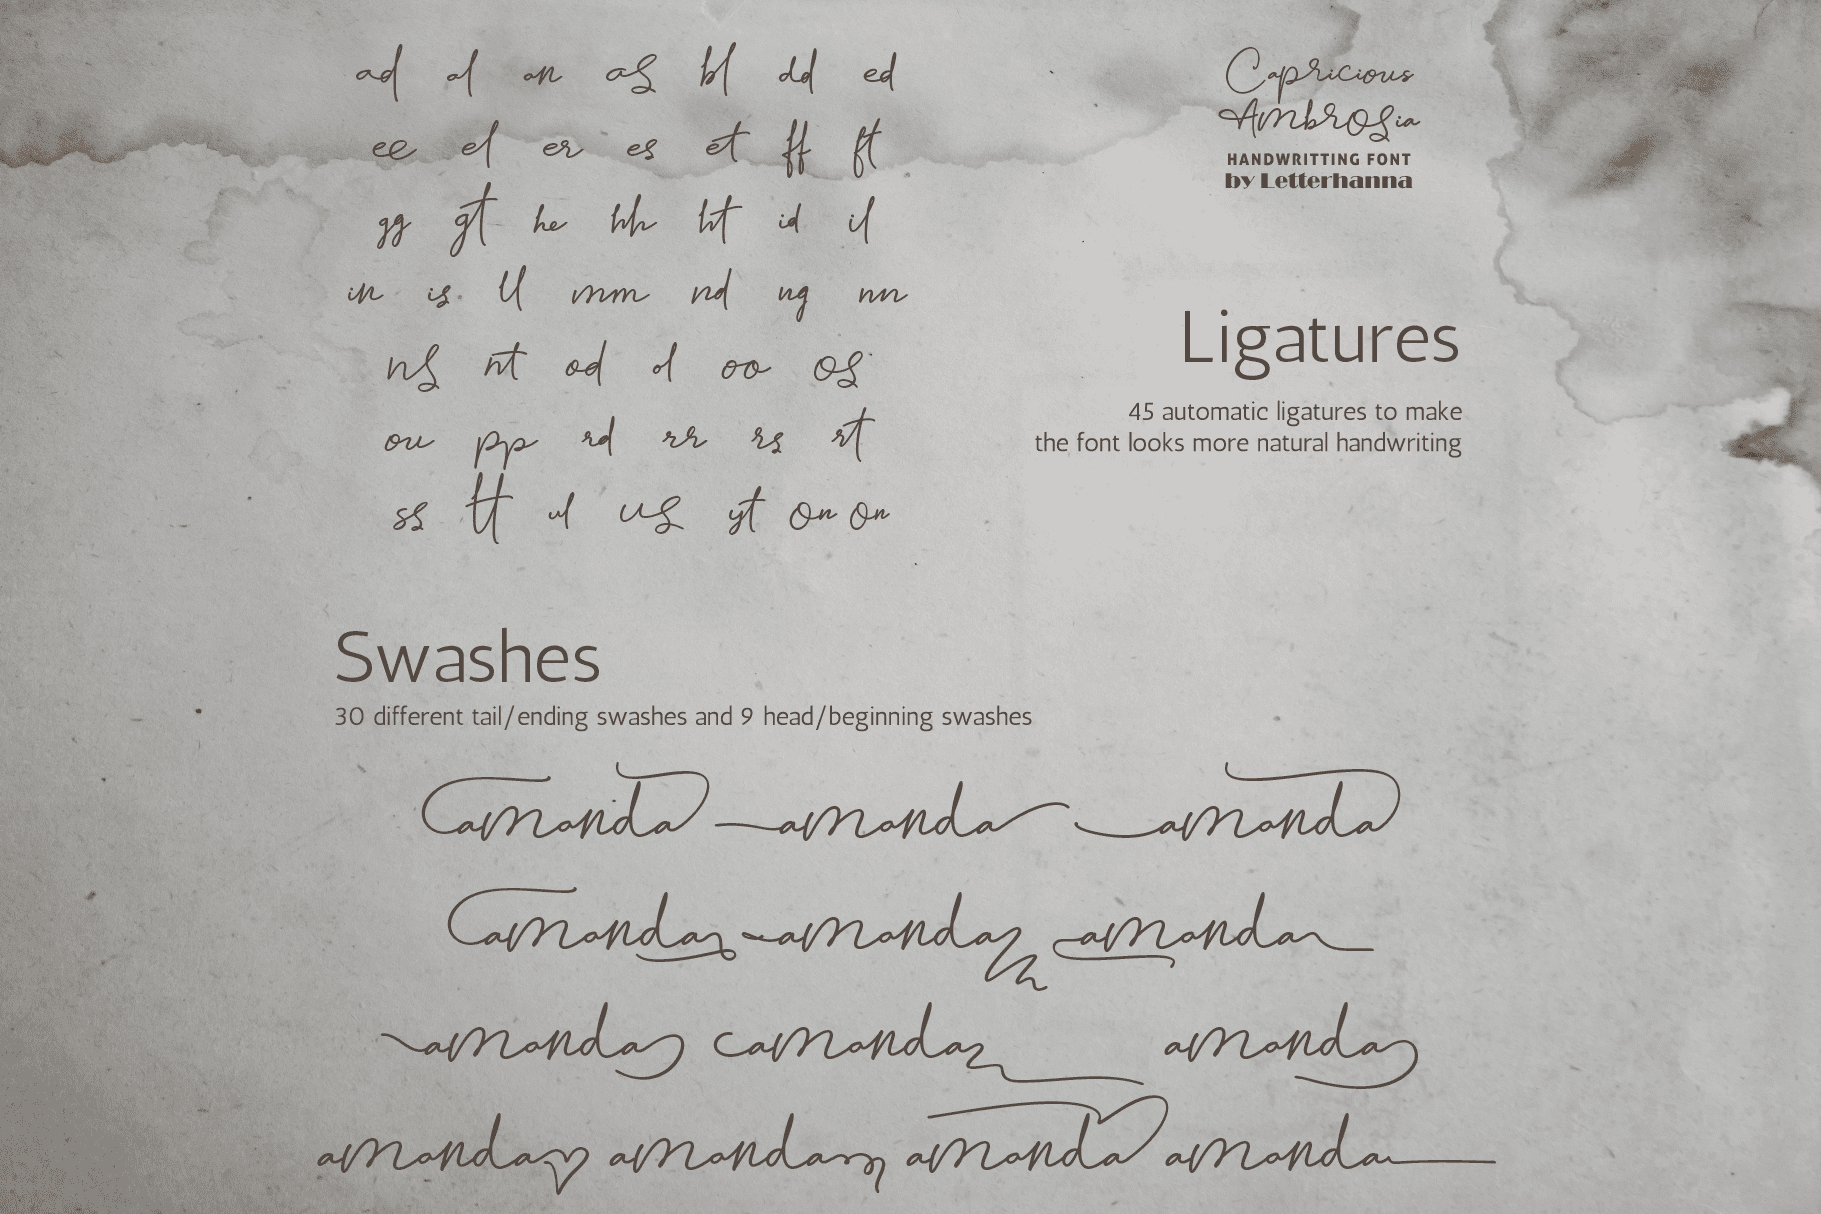 ad al an as bl dd ed
ee el er es et ff ft
gg gt he hh ht id il
in is ll mm nd ng nn
ns nt od ol oo os
ou pp rd rr rs rt
ss tt ul us yt on on
Capricious
Ambrosia
HANDWRITTING FONT
by Letterhanna
Ligatures
45 automatic ligatures to make
the font looks more natural handwriting
Swashes
30 different tail/ending swashes and 9 head/beginning swashes
amanda amanda amanda
amanda amanda amanda
amanda amanda amanda
amanda amanda amanda amanda